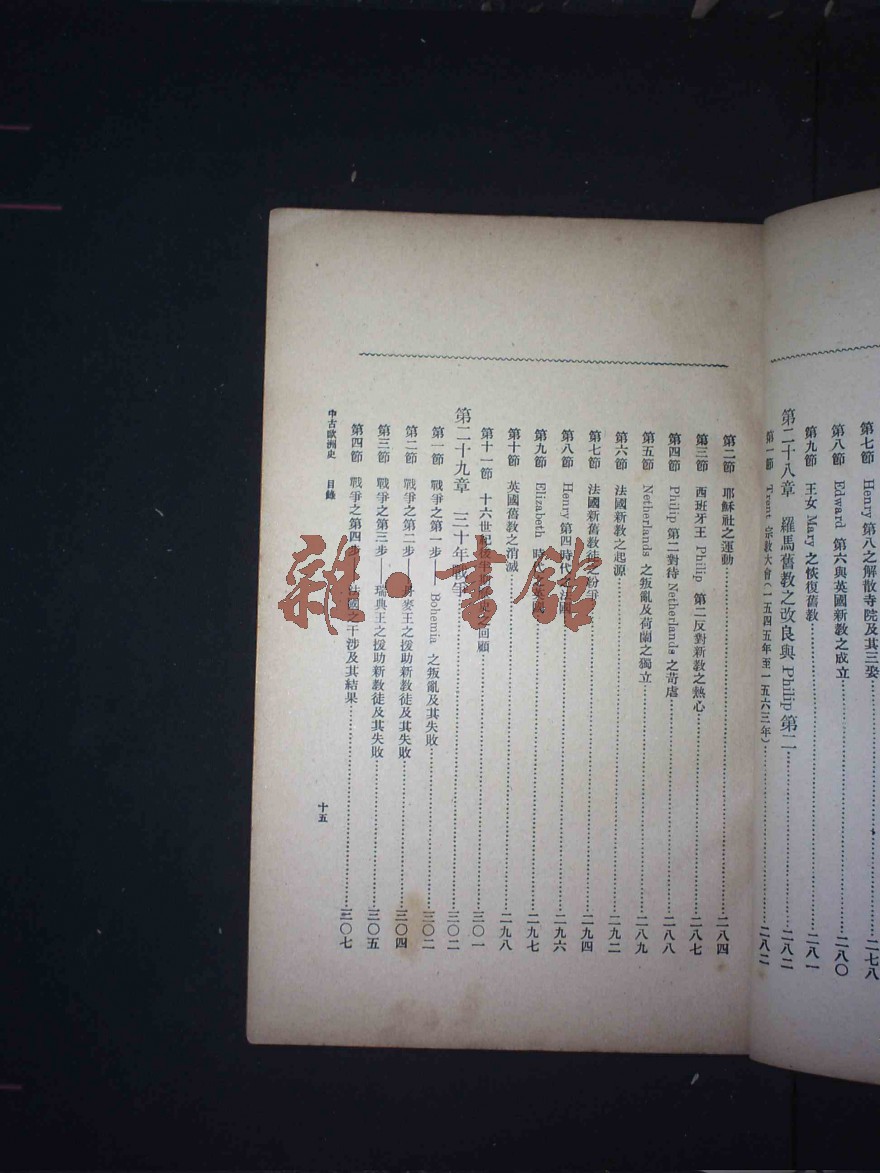 第七節 Henry 第八之解散寺院及其三娶……二七八
第八節 Edward 第六與英國新教之成立……二八〇
第九節 王女 Mary 之恢復舊教……二八一
第二十八章 羅馬舊教之改良與 Philip 第二……二八二
第一節 Trent 宗教大會(一五四五年至一五六三年)……二八二
第二節 耶穌社之運動……二八四
第三節 西班牙王 Philip 第二反對新教之熱心……二八七
第四節 Philip 第二對待 Netherlands 之苛虐……二八八
第五節 Netherlands 之叛亂及荷蘭之獨立……二八九
第六節 法國新教之起源……二九二
第七節 法國新舊教徒之紛爭……二九四
第八節 Henry 第四時代之法國……二九六
第九節 Elizabeth 時代之英國……二九七
第十節 英國舊教之消滅……二九八
第十一節 十六世紀後半期歷史之回顧……三〇一
第二十九章 三十年戰爭……三〇二
第一節 戰爭之第一步——Bohemia 之叛亂及其失敗……三〇二
第二節 戰爭之第二步——丹麥王之援助新教徒及其失敗……三〇四
第三節 戰爭之第三步——瑞典王之援助新教徒及其失敗……三〇五
第四節 戰爭之第四步——法國之干涉及其結果……三〇七
中古歐洲史 目錄 十五
雜·書館